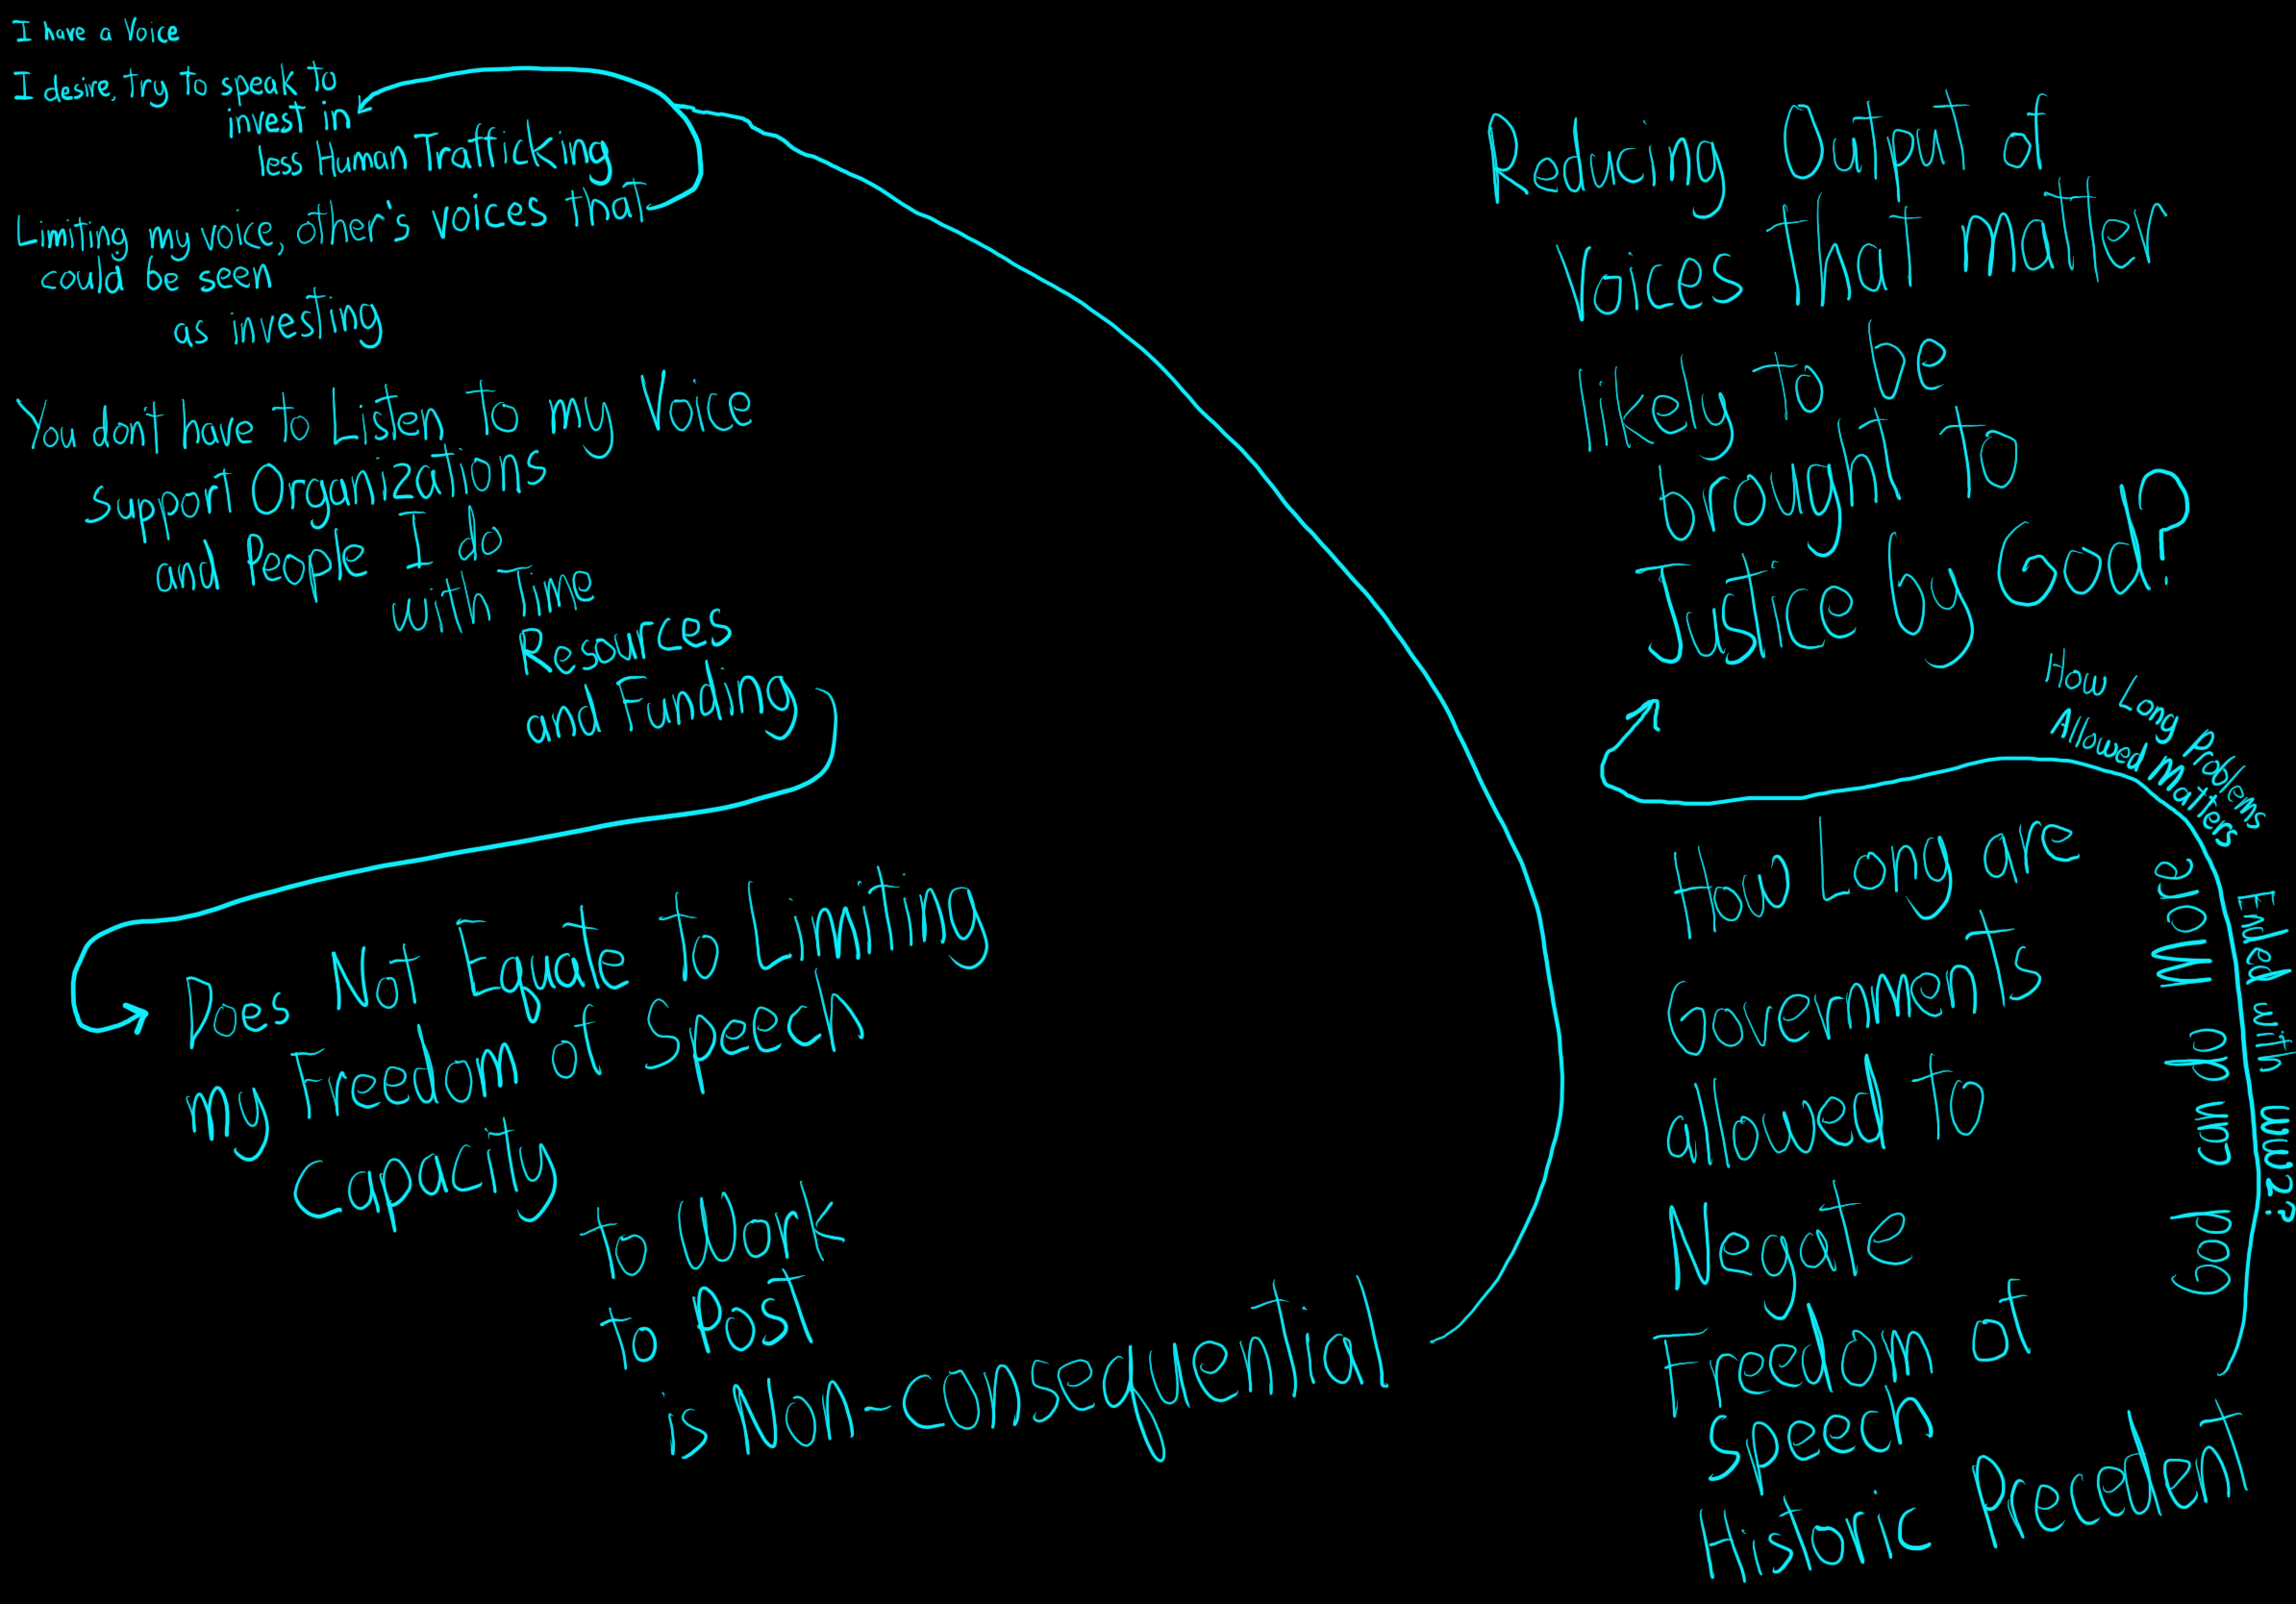 I have a Voice
I desire, try to speak to
invest in
less Human Trafficking
Limiting my voice, other's voices that
could be seen
as investing
You don't have to Listen to my Voice
Support Organizations
and People I do
with Time
Resources
and Funding
Does Not Equate to Limiting
my Freedom of Speech
Capacity
to Work
to Post
is Non-consequential
Reducing Output of
Voices that matter
likely to be
brought to
Justice by God?
How Long are
Governments
allowed to
Negate
Freedom of
Speech
Historic Precedent
How Long Problems
Allowed Matters
Ended with WW2?
God can do More